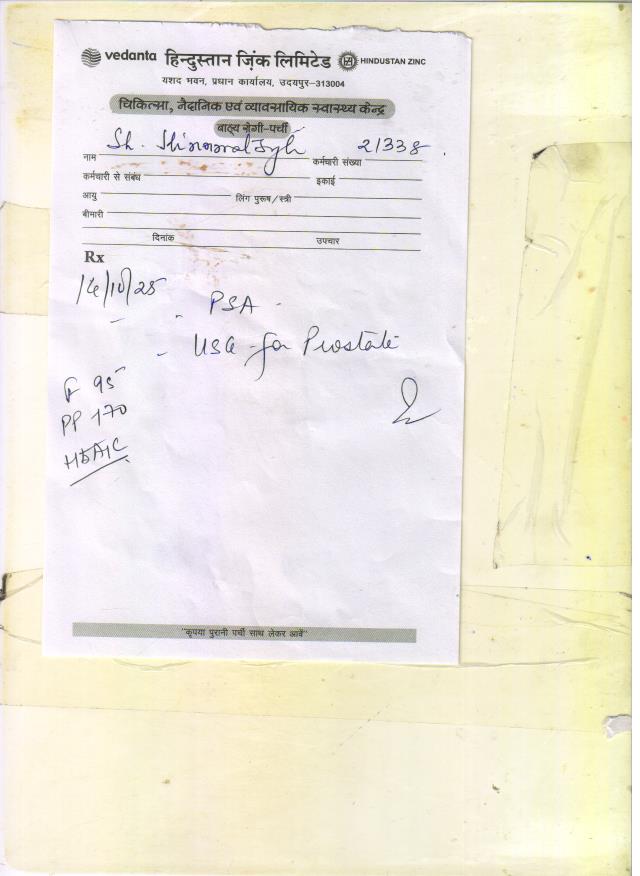 vedanta हिन्दुस्तान ज़िंक लिमिटेड HZL HINDUSTAN ZINC
यशद भवन, प्रधान कार्यालय, उदयपुर–313004
चिकित्सा, नैदानिक एवं व्यावसायिक स्वास्थ्य केन्द्र
बाह्य रोगी-पर्ची
नाम Sh. कर्मचारी संख्या 21338
कर्मचारी से संबंध इकाई
आयु लिंग पुरूष/स्त्री
बीमारी
दिनांक उपचार
Rx
14/10/25
- PSA -
- USG for Prostate
F 95
PP 170
HbA1C
"कृपया पुरानी पर्ची साथ लेकर आवें"